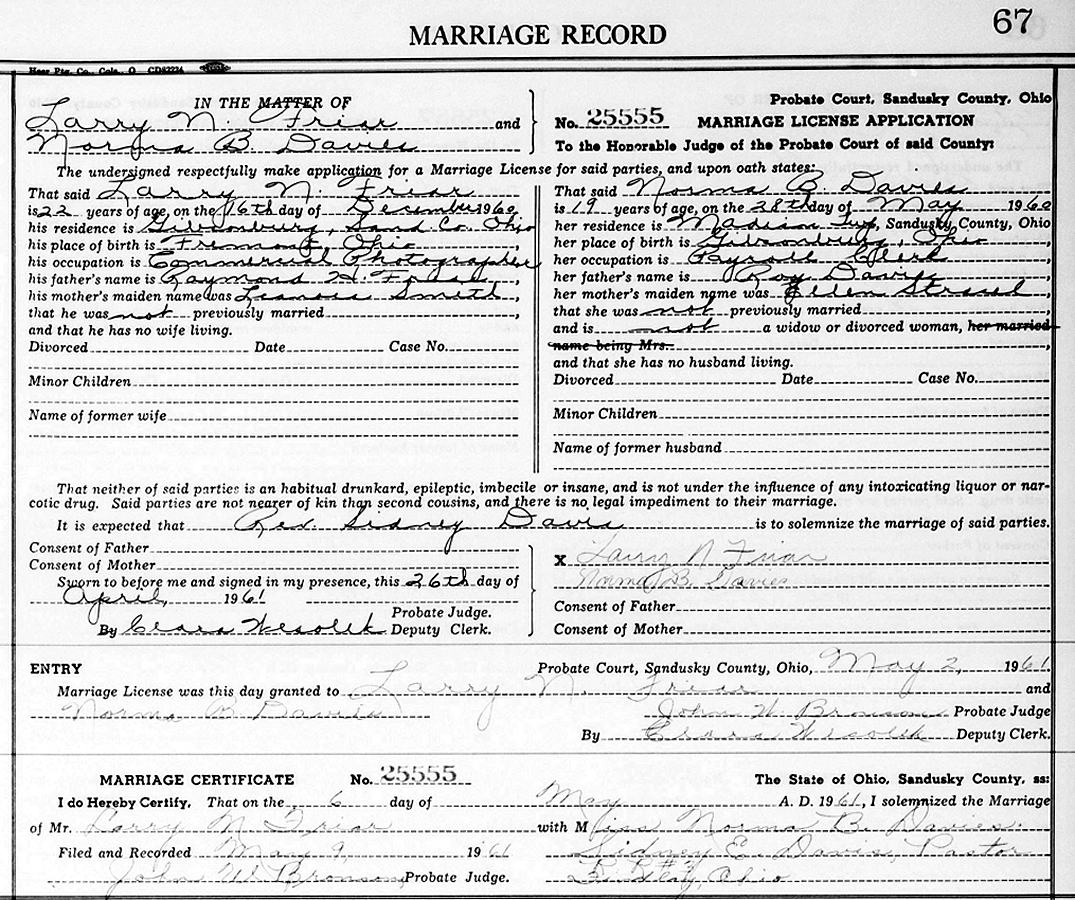 67
MARRIAGE RECORD
Heer Ptg. Co., Cols., O. CD82224
IN THE MATTER OF
Larry N. Friar and
Norma B. Davies
Probate Court, Sandusky County, Ohio
No. 25555 MARRIAGE LICENSE APPLICATION
To the Honorable Judge of the Probate Court of said County:
The undersigned respectfully make application for a Marriage License for said parties, and upon oath states:
That said Larry N. Friar
is 22 years of age, on the 16th day of December 1960
his residence is Gibsonburg, Sand. Co. Ohio
his place of birth is Fremont, Ohio
his occupation is Commercial Photographer
his father's name is Raymond H Friar
his mother's maiden name was Smith,
that he was not previously married,
and that he has no wife living.
Divorced Date Case No.
Minor Children
Name of former wife
That said Norma B Davies
is 19 years of age, on the 28th day of May 1960
her residence is Madison Twp, Sandusky County, Ohio
her place of birth is Gibsonburg, Ohio
her occupation is Payroll Clerk
her father's name is Roy Davies
her mother's maiden name was Ellen,
that she was not previously married,
and is not a widow or divorced woman, her married
name being Mrs.,
and that she has no husband living.
Divorced Date Case No.
Minor Children
Name of former husband
That neither of said parties is an habitual drunkard, epileptic, imbecile or insane, and is not under the influence of any intoxicating liquor or nar-
cotic drug. Said parties are not nearer of kin than second cousins, and there is no legal impediment to their marriage.
It is expected that Rev. Sidney Davis is to solemnize the marriage of said parties.
Consent of Father
Consent of Mother
Sworn to before me and signed in my presence, this 26th day of
April, 1961
Probate Judge.
By Clara Wesolek Deputy Clerk.
X Larry N Friar
Norma B. Davies
Consent of Father
Consent of Mother
ENTRY Probate Court, Sandusky County, Ohio, May 2, 1961
Marriage License was this day granted to Larry N. Friar and
Norma B Davies John W. Bronson Probate Judge
By Clara Wesolek Deputy Clerk.
MARRIAGE CERTIFICATE No. 25555 The State of Ohio, Sandusky County, ss:
I do Hereby Certify, That on the 6 day of May A. D. 1961, I solemnized the Marriage
of Mr. Larry N Friar with Miss Norma B. Davies
Filed and Recorded May 9, 1961 Sidney E. Davis, Pastor
John W. Bronson, Probate Judge. Findlay, Ohio